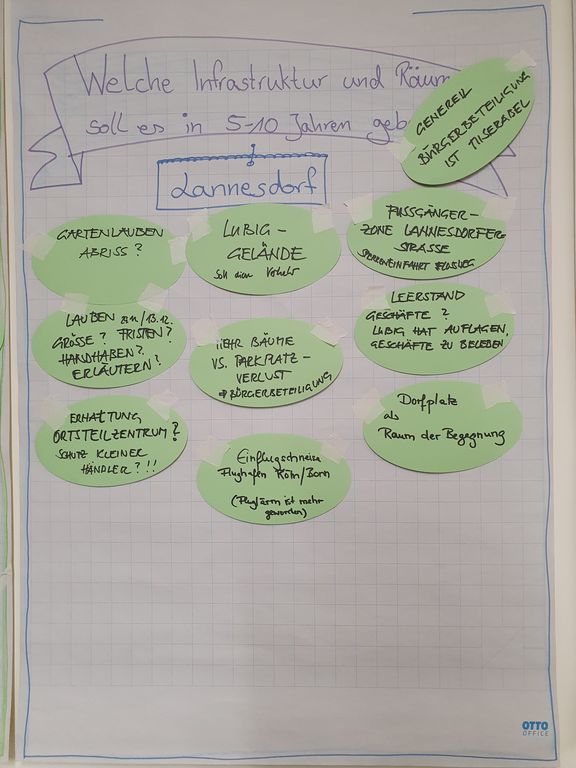 Welche Infrastruktur und Räum
soll es in 5-10 Jahren geb
GENERELL
BÜRGERBETEILIGUNG
IST MISERABEL
Lannesdorf
GARTENLAUBEN
ABRISS?
LUBIG-
GELÄNDE
Soll Verkehr
FUSSGÄNGER-
ZONE LANNESDORFER-
STRASSE
LAUBEN 13.12.
GRÖSSE? FRISTEN?
HANDHABEN?
ERLÄUTERN?
MEHR BÄUME
VS. PARKPLATZ-
VERLUST
BÜRGERBETEILIGUNG
LEERSTAND
GESCHÄFTE?
LUBIG HAT AUFLAGEN,
GESCHÄFTE ZU BELEBEN
ERHALTUNG
ORTSTEILZENTRUM?
SCHUTZ KLEINER
HÄNDLER?!!
Einflugschneise
Flughafen Köln/Bonn
(Fluglärm ist mehr
geworden)
Dorfplatz
als
Raum der Begegnung
OTTO
OFFICE